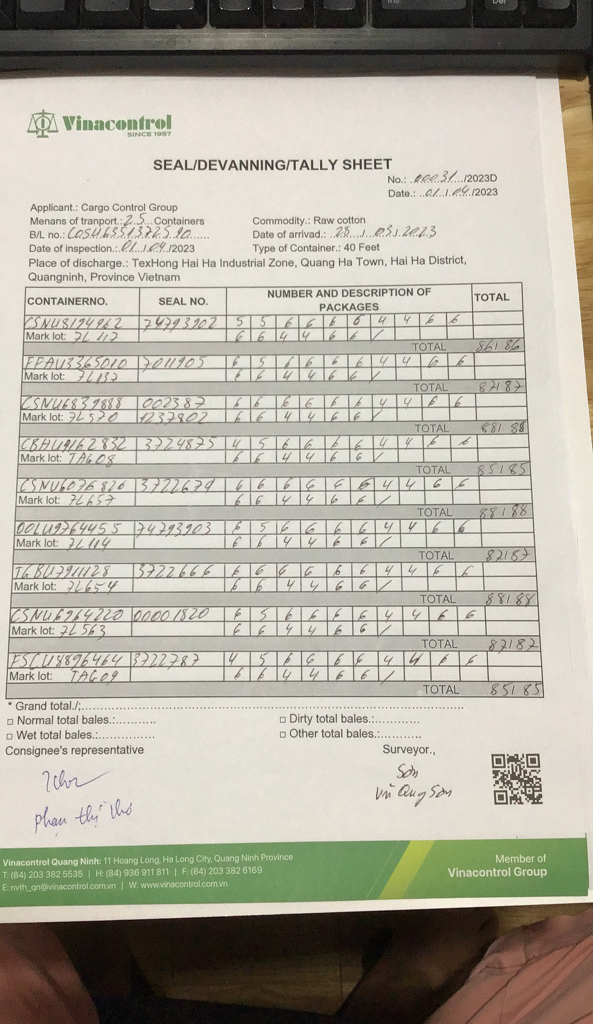 Ins
Del
Vinacontrol
SINCE 1957
SEAL/DEVANNING/TALLY SHEET
No.: 00031.../2023D
Date.: 01/04/2023
Applicant.: Cargo Control Group
Menans of tranport.: 25 Containers
Commodity.: Raw cotton
B/L no.: COSU6351372590......
Date of arrivad.: 28.../.03.2023
Date of inspection.: 01/04/2023
Type of Container.: 40 Feet
Place of discharge.: TexHong Hai Ha Industrial Zone, Quang Ha Town, Hai Ha District,
Quangninh, Province Vietnam
CONTAINERNO. SEAL NO. NUMBER AND DESCRIPTION OF PACKAGES TOTAL
CSNU8194962 74793902 5 5 6 6 6 6 4 4 6 6
Mark lot: ZL 117 6 6 4 4 6 6 /
TOTAL 86186
FFAU3365010 7011905 6 5 6 6 6 6 4 4 6 6
Mark lot: ZL137 6 6 4 4 6 6 /
TOTAL 87187
CSNU6839888 002387 6 6 6 6 6 6 4 4 6 6
Mark lot: ZL570 1237802 6 6 4 4 6 6 /
TOTAL 88188
CBHU9162832 3724875 4 5 6 6 6 6 4 4 6 6
Mark lot: TAG08 6 6 4 4 6 6 /
TOTAL 85185
CSNU6076820 3722679 6 6 6 6 6 6 4 4 6 6
Mark lot: ZL657 6 6 4 4 6 6 /
TOTAL 88188
OOLU9764455 74793903 6 5 6 6 6 6 4 4 6 6
Mark lot: ZL114 6 6 4 4 6 6 /
TOTAL 87187
TGBU7911128 3722666 6 6 6 6 6 6 4 4 6 6
Mark lot: ZL654 6 6 4 4 6 6 /
TOTAL 88188
CSNU6964220 00001820 6 5 6 6 6 6 4 4 6 6
Mark lot: ZL563 6 6 4 4 6 6 /
TOTAL 87187
FSCU8896464 3722787 4 5 6 6 6 6 4 4 6 6
Mark lot: TAG09 6 6 4 4 6 6 /
TOTAL 85185
* Grand total./:
□ Normal total bales.:...........
□ Dirty total bales.:...........
□ Wet total bales.:...........
□ Other total bales.:...........
Consignee's representative
Surveyor.,
Sơn
Vũ Quang Sơn
phan thị thơ
Vinacontrol Quang Ninh: 11 Hoang Long, Ha Long City, Quang Ninh Province
T: (84) 203 382 5535 | H: (84) 936 911 811 | F: (84) 203 382 6169
E: nvth_qn@vinacontrol.com.vn | W: www.vinacontrol.com.vn
Member of
Vinacontrol Group